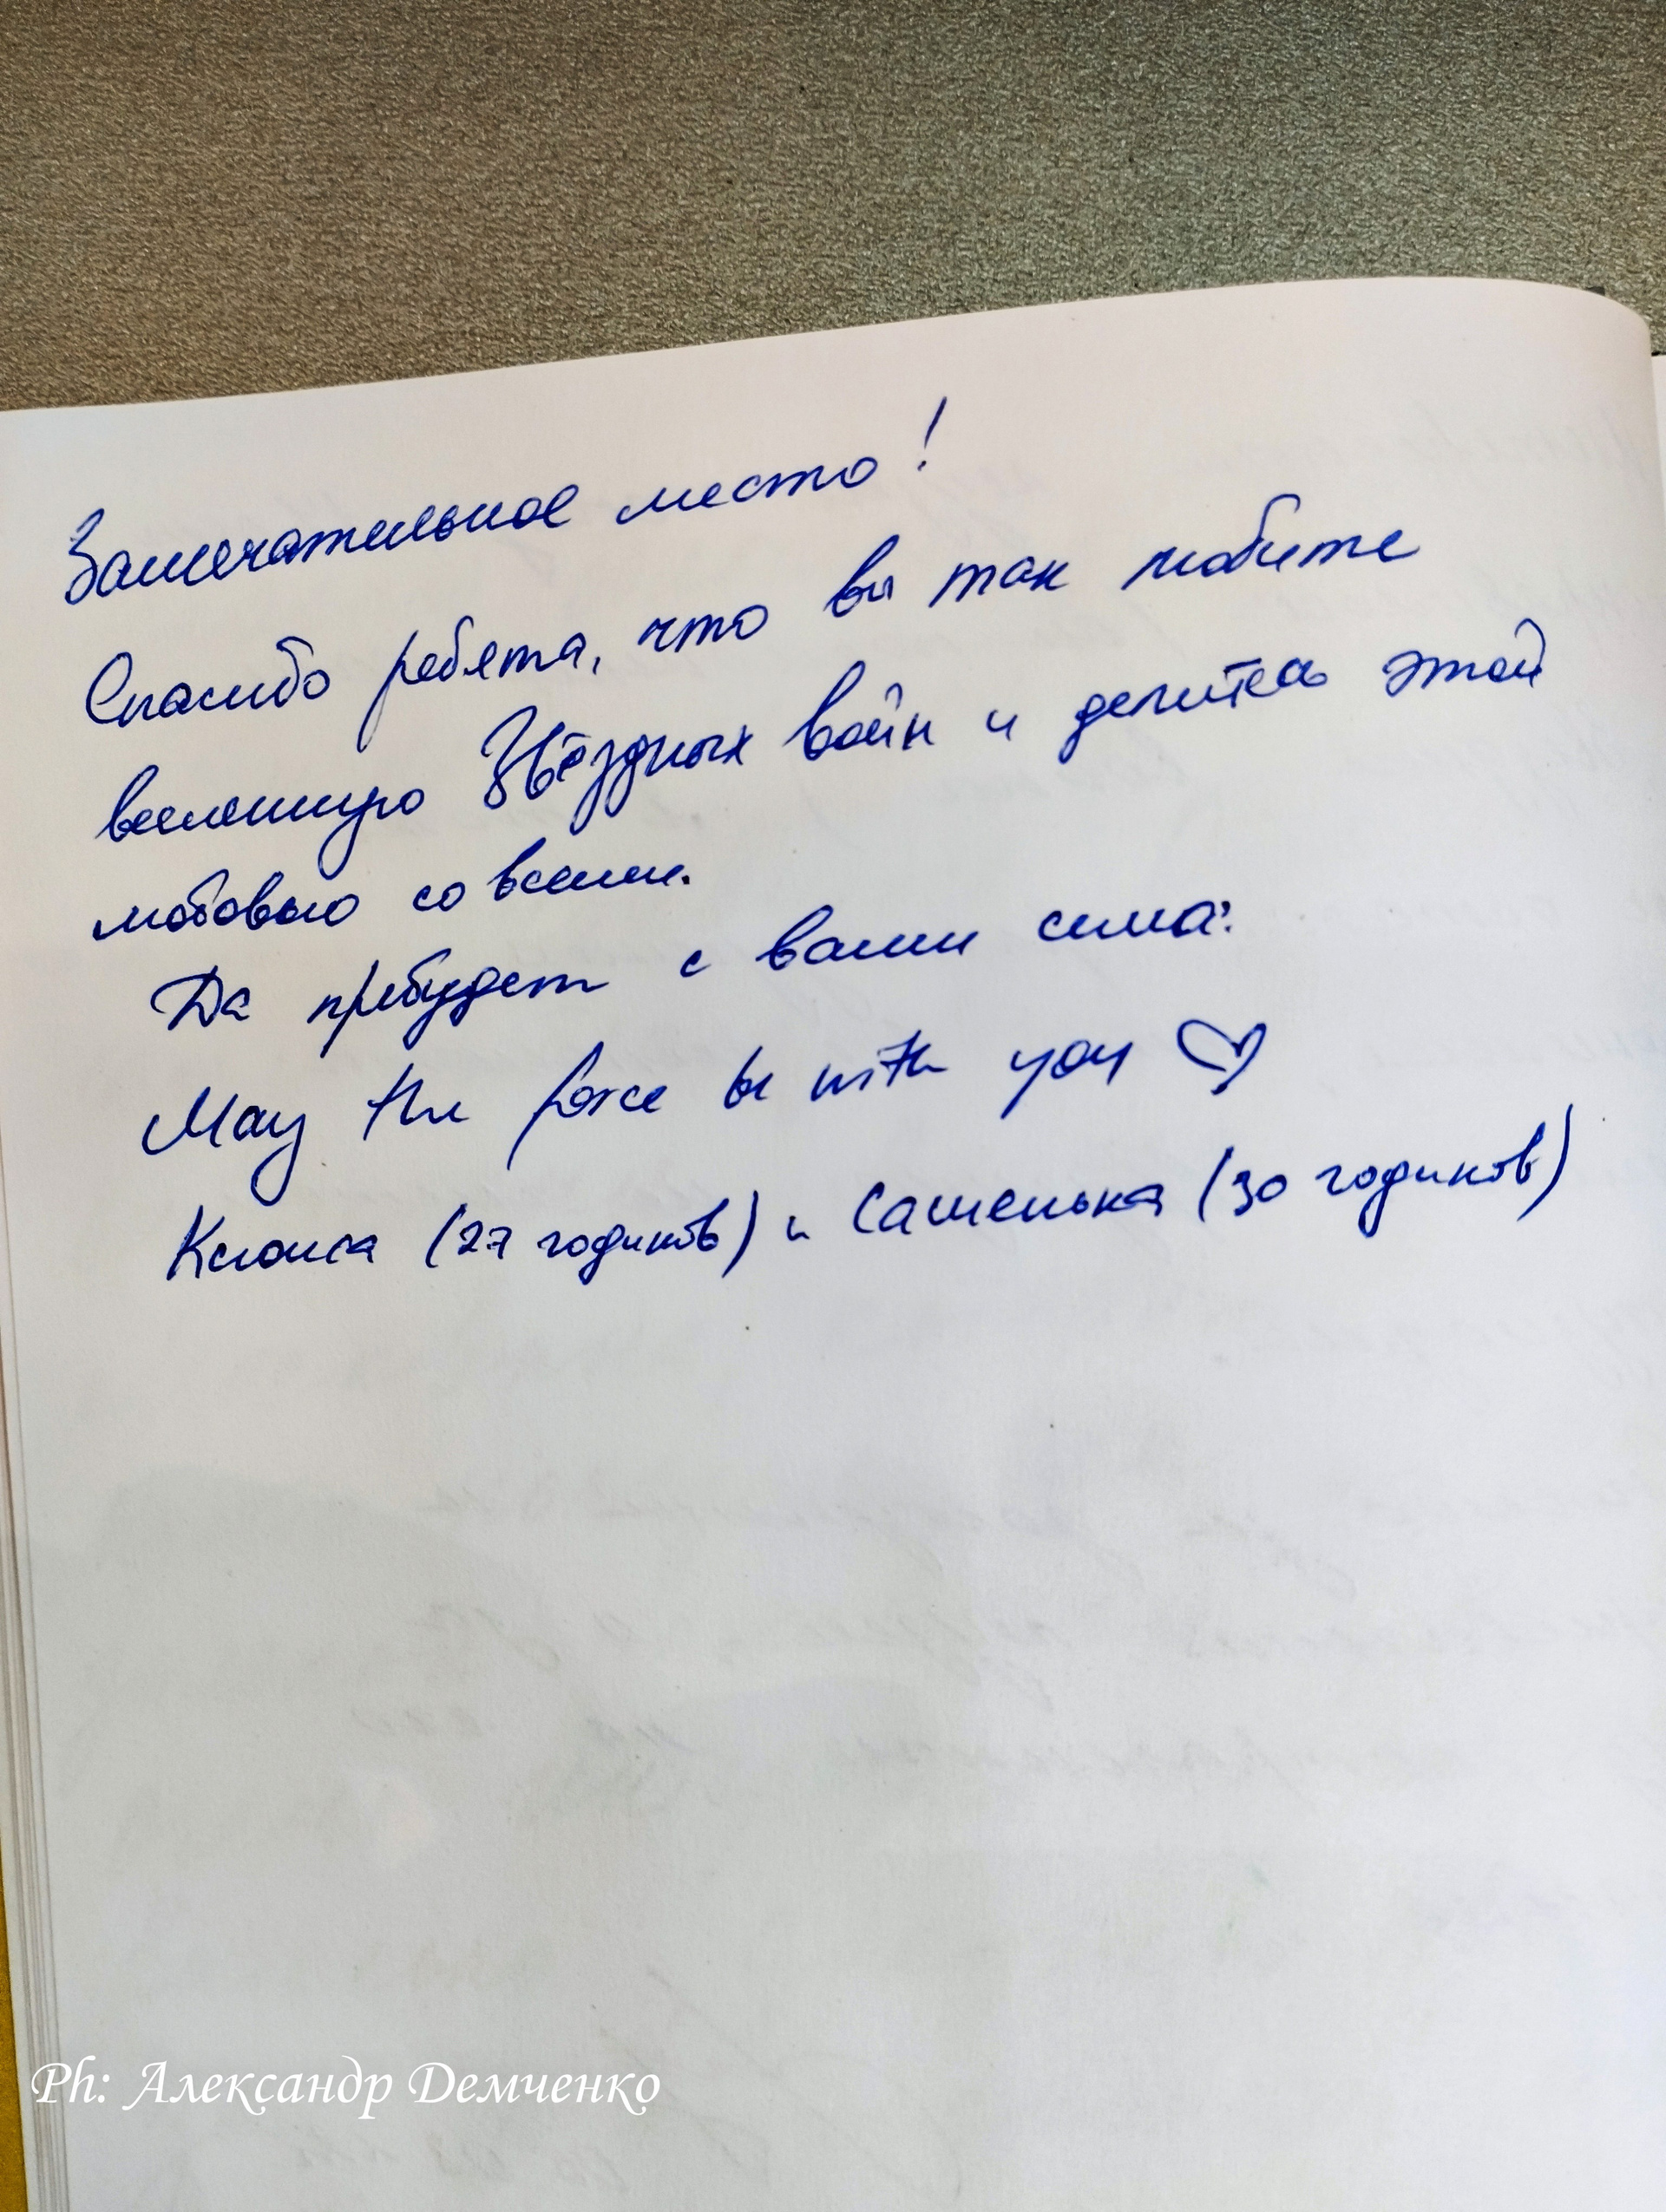 Замечательное место!
Спасибо ребята, что вы так любите
вселенную Звёздных войн и делитесь этой
любовью со всеми.
Да пребудет с вами сила:
May the force be with you ♡
Ксюша (27 годиков) и Сашенька (30 годиков)
Ph: Александр Демченко